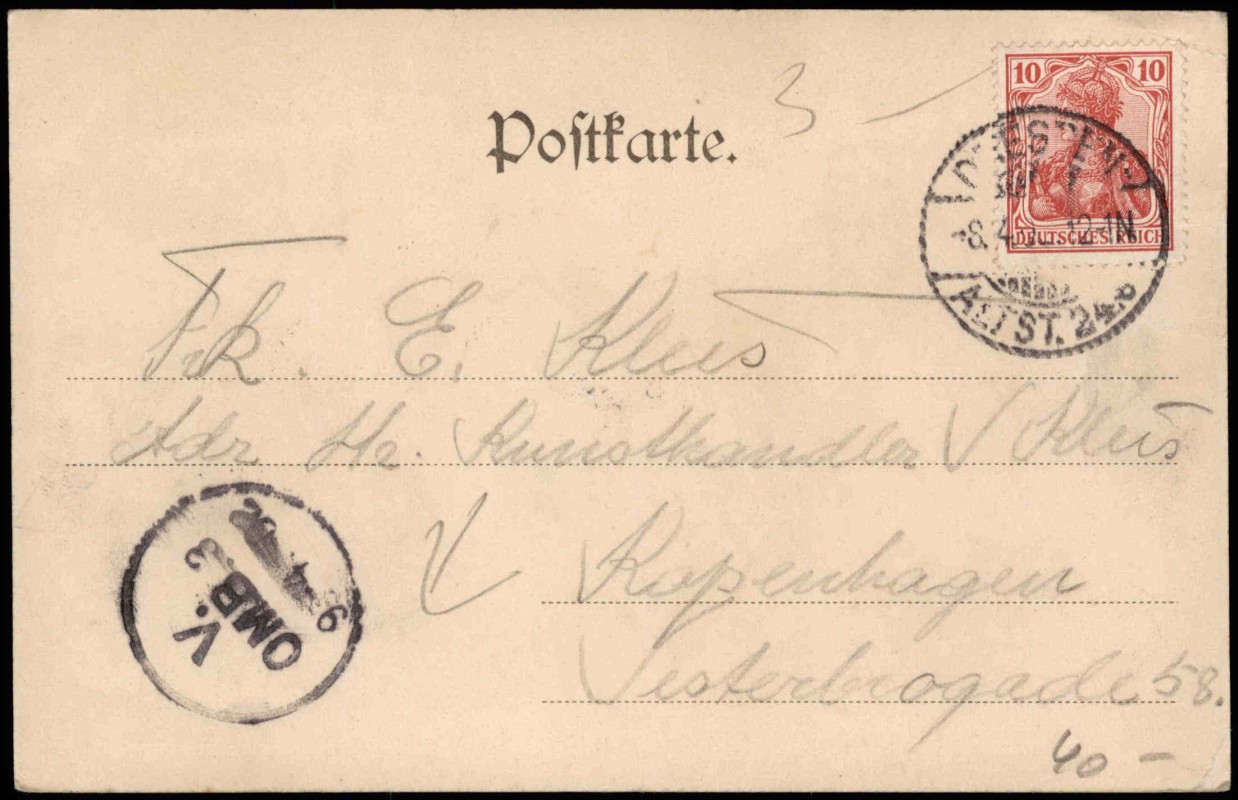 Postkarte.
3
10 10
DEUTSCHES REICH
DRESDEN
12-1N
ALTST. 24.
Frk. E. Kleis
Adr Hr. Kunsthandler V Kleis
V
Kopenhagen
Vesterbrogade 58.
V.
OMB. 3
40 -